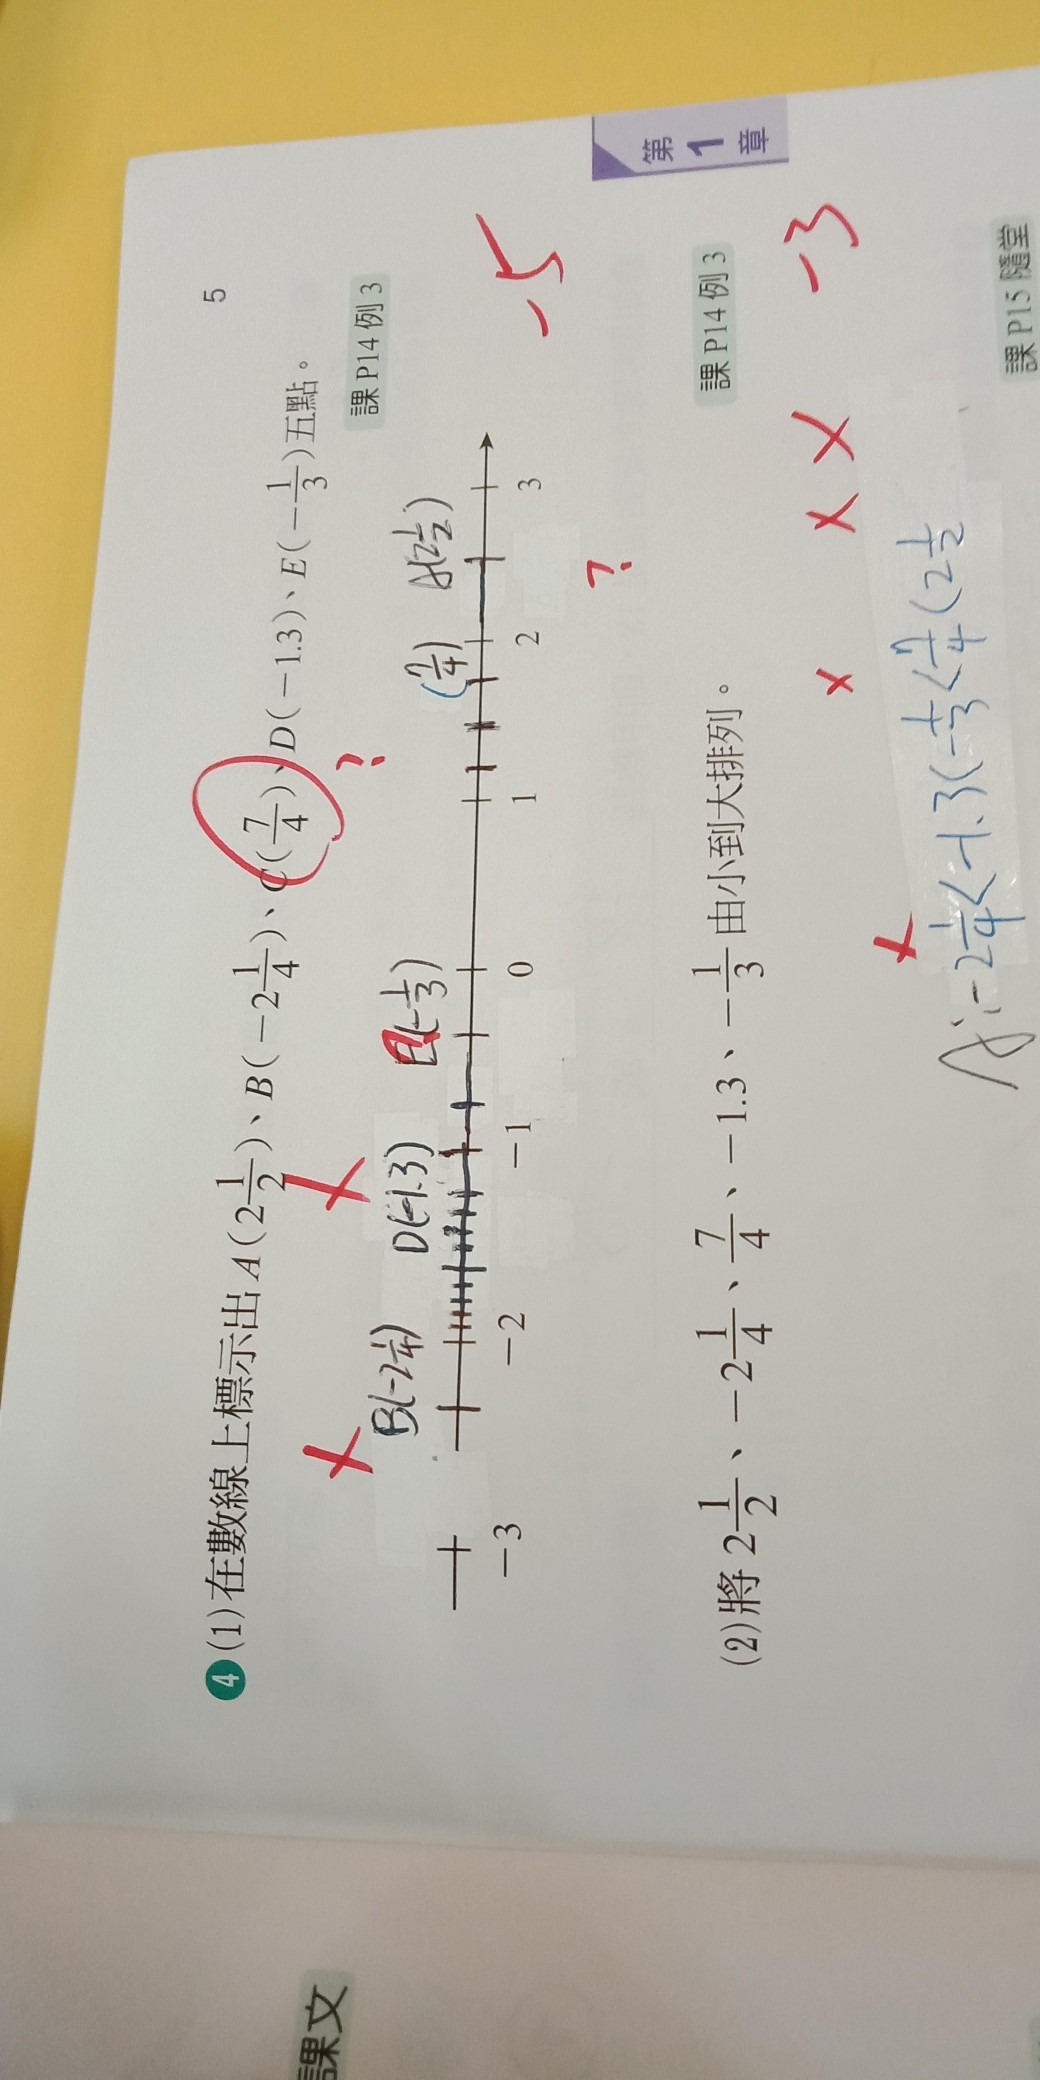 5
第1章
4 (1)在數線上標示出 A(2 1/2)、B(-2 1/4)、C(7/4)、D(-1.3)、E(-1/3)五點。
? 課 P14 例 3
B(-2 1/4) D(-1.3) E(-1/3) (7/4) A(2 1/2)
-3 -2 -1 0 1 2 3
-5
?
(2)將 2 1/2、-2 1/4、7/4、-1.3、-1/3 由小到大排列。
課 P14 例 3
-3
A:-2 1/4<-1.3<-1/3<7/4<2 1/2
課 P15 隨堂
課文